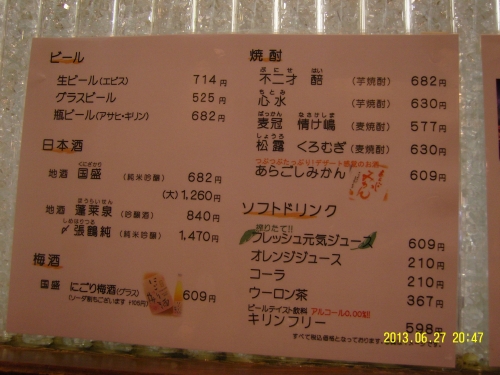 ビール
生ビール(エビス) 714円
グラスビール 525円
瓶ビール(アサヒ・キリン) 682円
日本酒
くにざかり
地酒 国盛 (純米吟醸) 682円
(大) 1,260円
ほうらいせん
地酒 蓬莱泉 (吟醸酒) 840円
しめはりつる
〆張鶴純 (純米吟醸) 1,470円
梅酒
国盛 にごり梅酒(グラス) 609円
(ソーダ割もございます +105円)
焼酎
ぶにせ はい
不二才 醅 (芋焼酎) 682円
ちとみ
心水 (芋焼酎) 630円
ばっかん なさけしま
麦冠 情け嶋 (麦焼酎) 577円
しょうろ
松露 くろむぎ (麦焼酎) 630円
つぶつぶたっぷり!デザート感覚のお酒
あらごしみかん 609円
ソフトドリンク
搾りたて!!
フレッシュ元気ジュース 609円
オレンジジュース 210円
コーラ 210円
ウーロン茶 367円
ビールテイスト飲料 アルコール0.00%!
キリンフリー 598円
すべて税込価格となっております。
2013.06.27 20:47